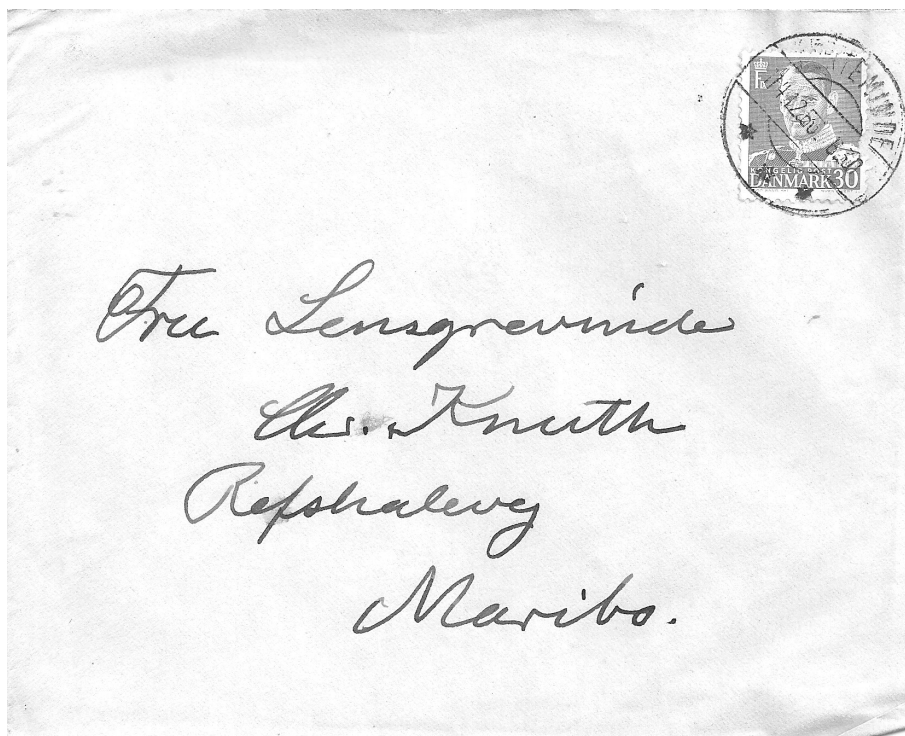 KERTEMINDE
KONGELIG POST
DANMARK 30
Fru Lensgrevinde
Chr. Knuth
Refshalevej
Maribo.